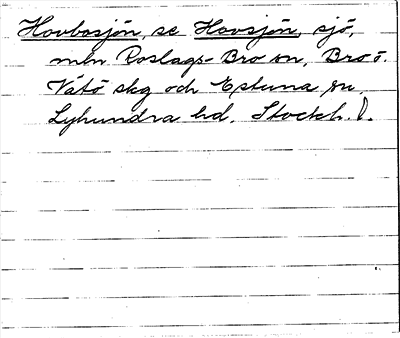 Hovbosjön, se Hovsjön, sjö,
mln Roslags-Bro sn, Bro o.
Vätö skg och Estuna sn,
Lyhundra hd. Stockh. l.